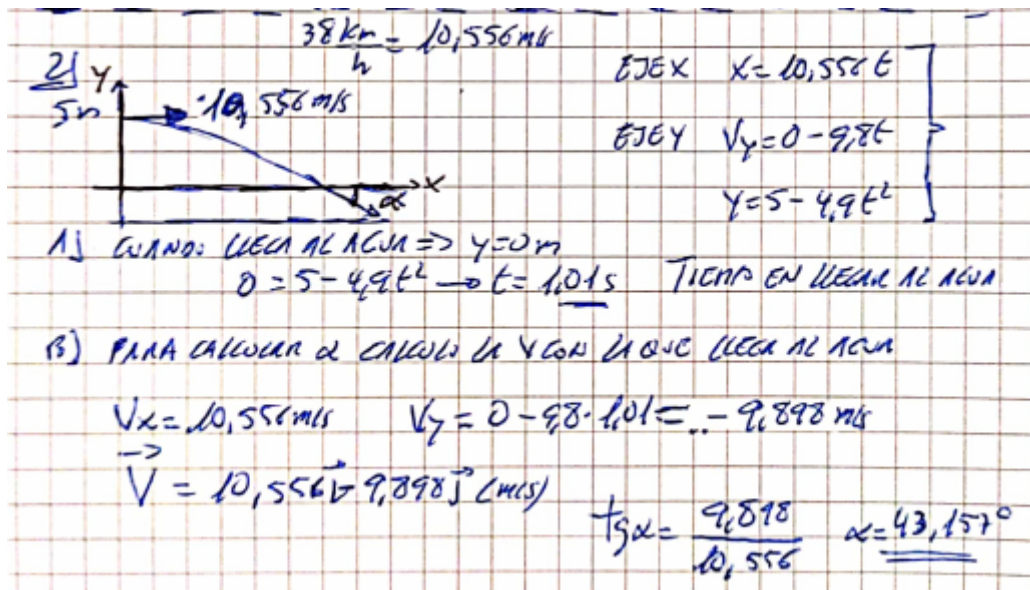 38 km/h = 10,556 m/s
2) Y
5m 10,556 m/s
X
α
EJE X X = 10,556 t
EJE Y Vy = 0 - 9,8t
Y = 5 - 4,9 t²
A) CUANDO LLEGA AL AGUA => y = 0 m
0 = 5 - 4,9t² → t = 1,01 s TIEMPO EN LLEGAR AL AGUA
B) PARA CALCULAR α CALCULO LA V CON LA QUE LLEGA AL AGUA
Vx = 10,556 m/s Vy = 0 - 9,8 · 1,01 = .. - 9,898 m/s
V⃗ = 10,556 i⃗ - 9,898 j⃗ (m/s)
tg α = 9,898 / 10,556 α = 43,157°